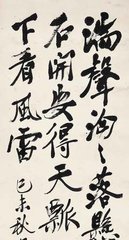 湍聲洶〻落懸
石開安得天瓢
下看風雷
己未秋